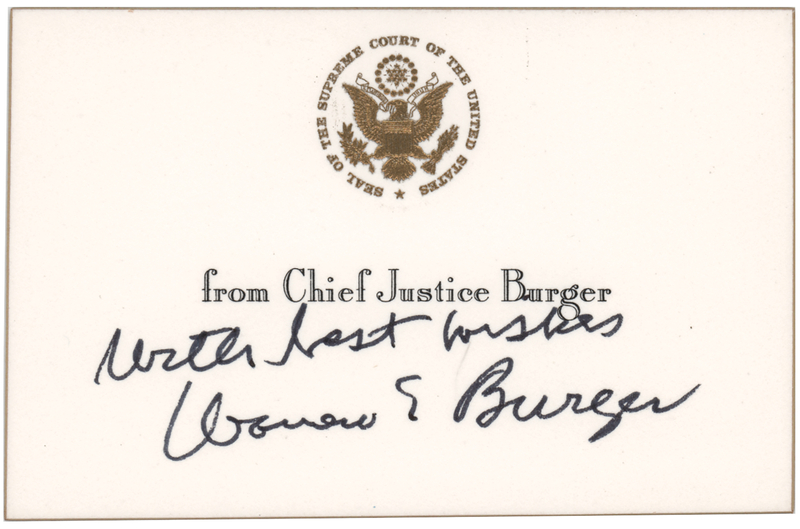 SEAL OF THE SUPREME COURT OF THE UNITED STATES
from Chief Justice Burger
With best wishes
Warren E Burger